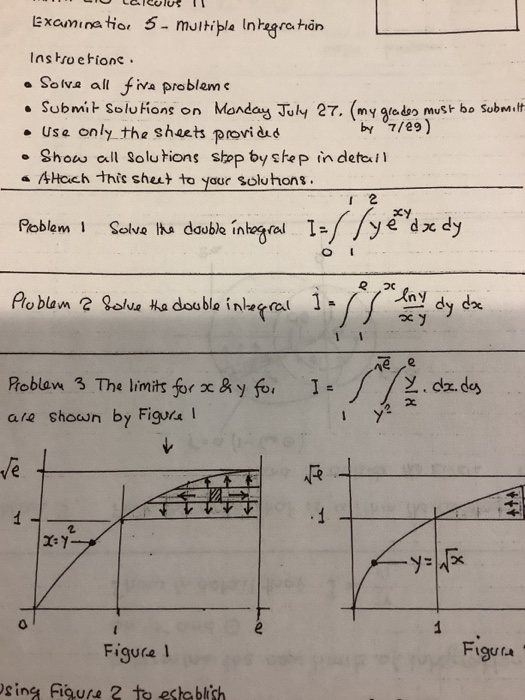 Examination 5 - Multiple Integration
Instructions.
• Solve all five problems
• Submit Solutions on Monday July 27. (my grades must be submitt
by 7/29)
• Use only the sheets provided
• Show all Solutions step by step in detail
• Attach this sheet to your solutions.
Problem 1 Solve the double integral I = ∫₀¹ ∫₁² y e^{xy} dx dy
Problem 2 Solve the double integral I = ∫₁^e ∫₁^x ln y / xy dy dx
Problem 3 The limits for x & y for I = ∫₁^{√e} ∫_{y²}^e y/x . dx dy
are shown by Figure 1
√e
1
x=y²
0
1
e
Figure 1
√e
1
y=√x
1
Figure
Using Figure 2 to establish